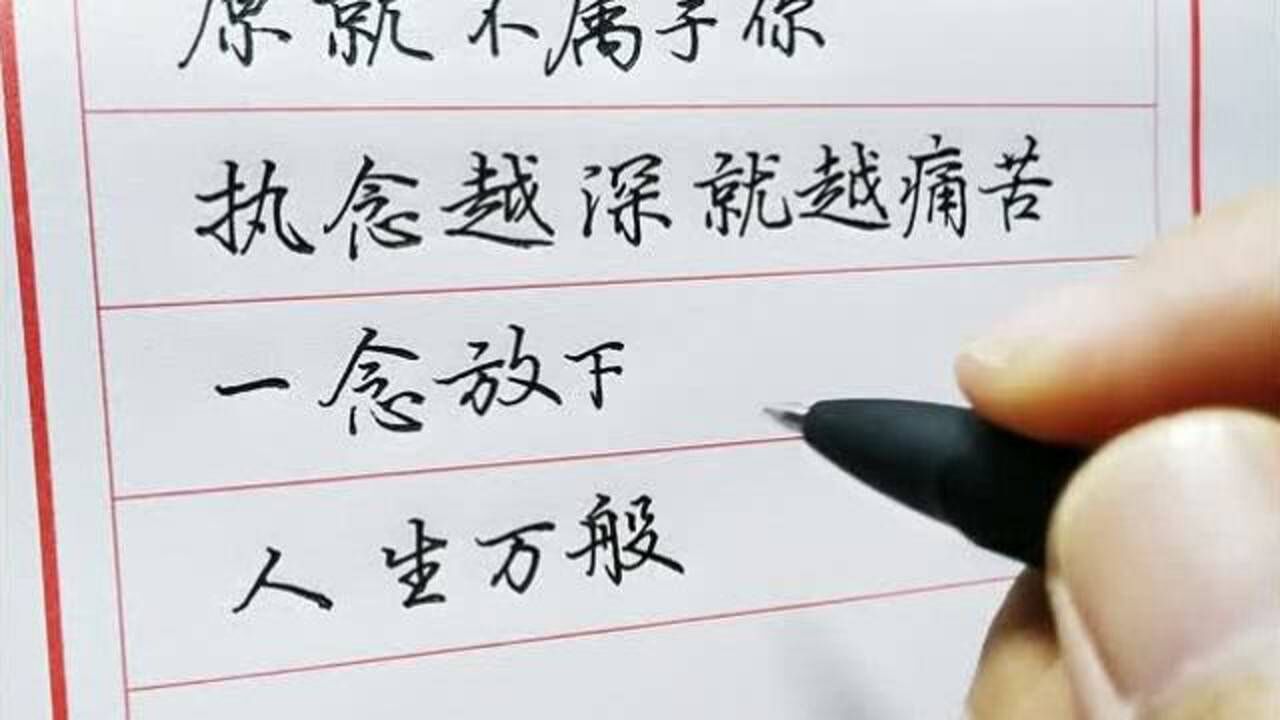 原就不属于你
执念越深就越痛苦
一念放下
人生万般